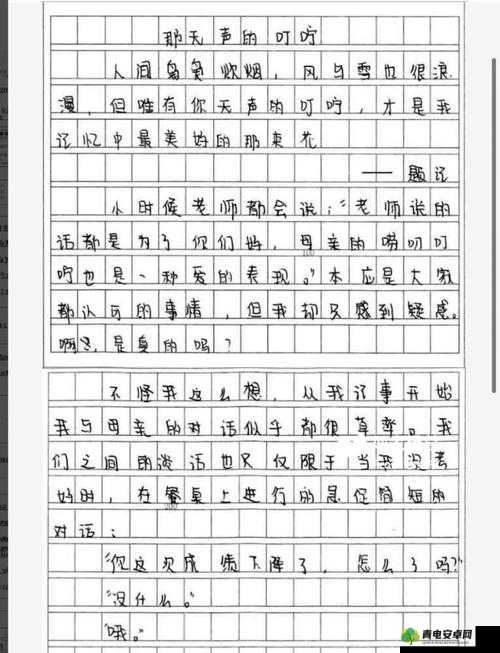 那无声的叮咛
人间袅袅炊烟，风与雪也很浪
漫，但唯有你无声的叮咛，才是我
记忆中最美好的那束花
——题记
小时候老师都会说："老师说的
话都是为了你们好，母亲的唠叨叮
咛也是一种爱的表现。"本应是大家
都认可的事情，但我却只感到疑惑。
啊？是真的吗？
不怪我这么想，从我记事开始
我与母亲的对话似乎都很草率。我
们之间的谈话也只仅限于当我没考
好时，在餐桌上进行的急促简短的
对话：
"你这次成绩下降了，怎么了吗？"
"没什么。"
"哦。"
青电安卓网